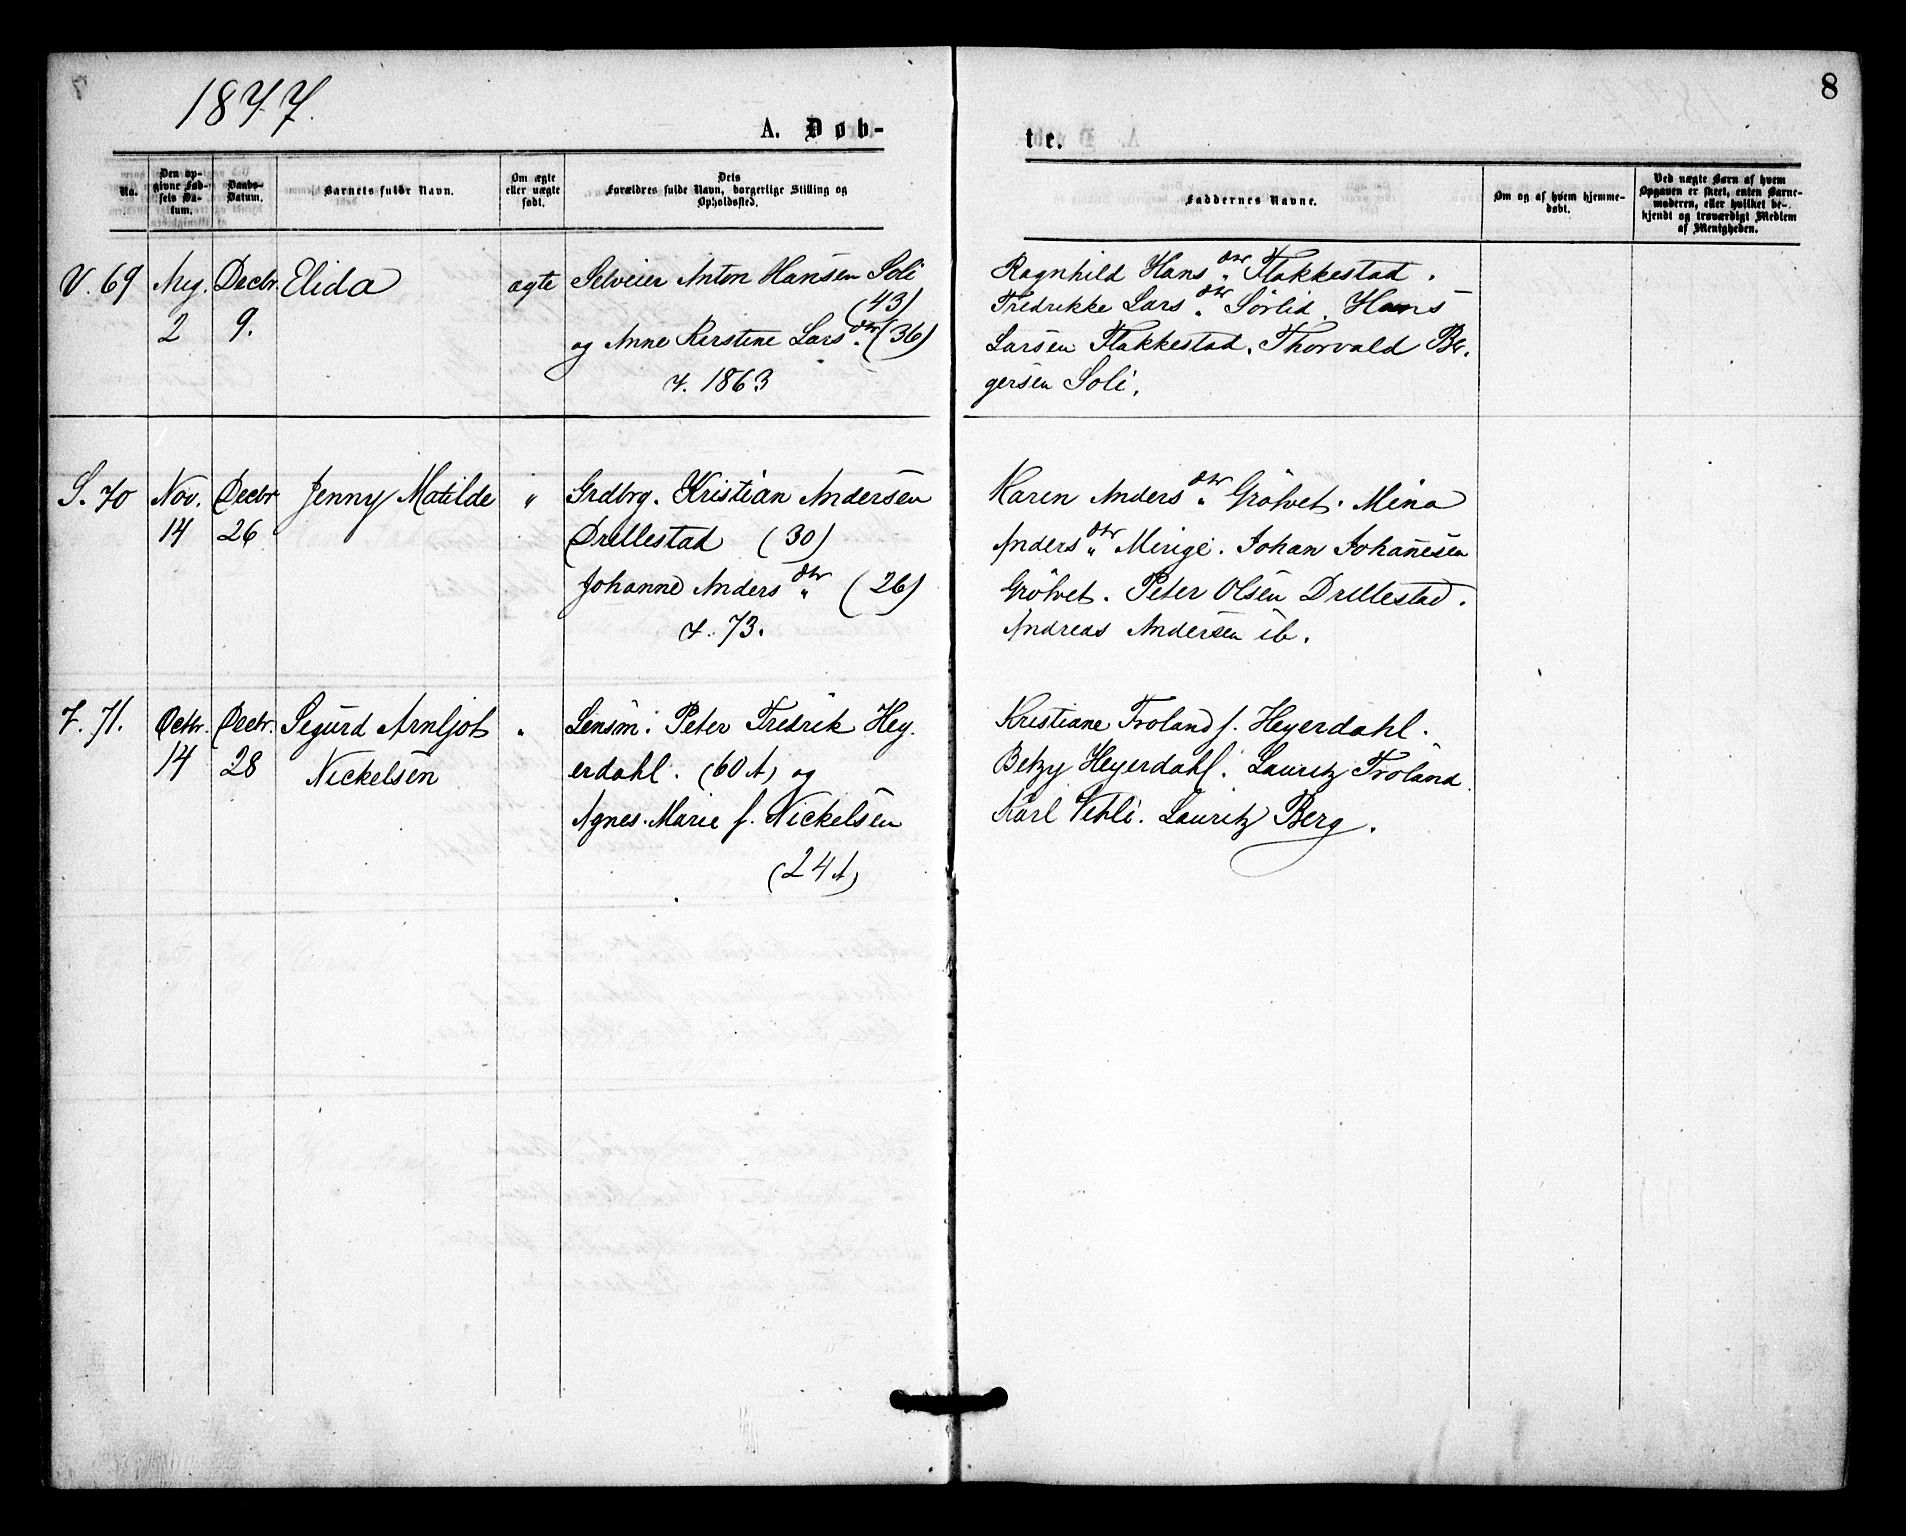 1877.
8
A. Døb-
te.
No.
Den op-
givne Fød-
sels Da-
tum.
Daabs-
Datum.
Barnets fulde Navn.
Om ægte
eller uægte
født.
Dets
Forældres fulde Navn, borgerlige Stilling og
Opholdssted.
Faddernes Navne.
Om og af hvem hjemme-
døbt.
Ved uægte Børn af hvem
Opgaven er skeet, enten Barne-
moderen, eller hvilket be-
kjendt og troværdigt Medlem
af Menigheden.
V. 69
Aug.
2
Decbr
9.
Elida
ægte
Selveier Anton Hansen Soli
(43)
og Anne Kerstine Larsdtr. (36)
v. 1863
Ragnhild Hansdtr. Flakkestad.
Fredrikke Larsdtr. Sörlid. Hans
Larsen Flakkestad. Thorvald Bir-
gersen Soli.
S. 70
Nov.
14
Decbr
26
Jenny Matilde
"
Grdbrg. Kristian Andersen
Drillestad (30)
Johanne Andersdtr. (26)
v. 73.
Karen Andersdtr. Grötvet. Mina
Andersdtr. Mirige. Johan Johanesen
Grötvet. Peter Olsen Drillestad.
Andreas Andersen ib.
V. 71.
Octbr.
14
Decbr.
28
Sigurd Arnljot
Nickelsen
"
Lensm. Peter Fredrik Hey-
erdahl. (60 A) og
Agnes. Marie f. Nickelsen
(24 A)
Kristiane Troland f. Heyerdahl.
Betzy Heyerdahl. Lauritz Troland
Karl Vehli. Lauritz Berg.